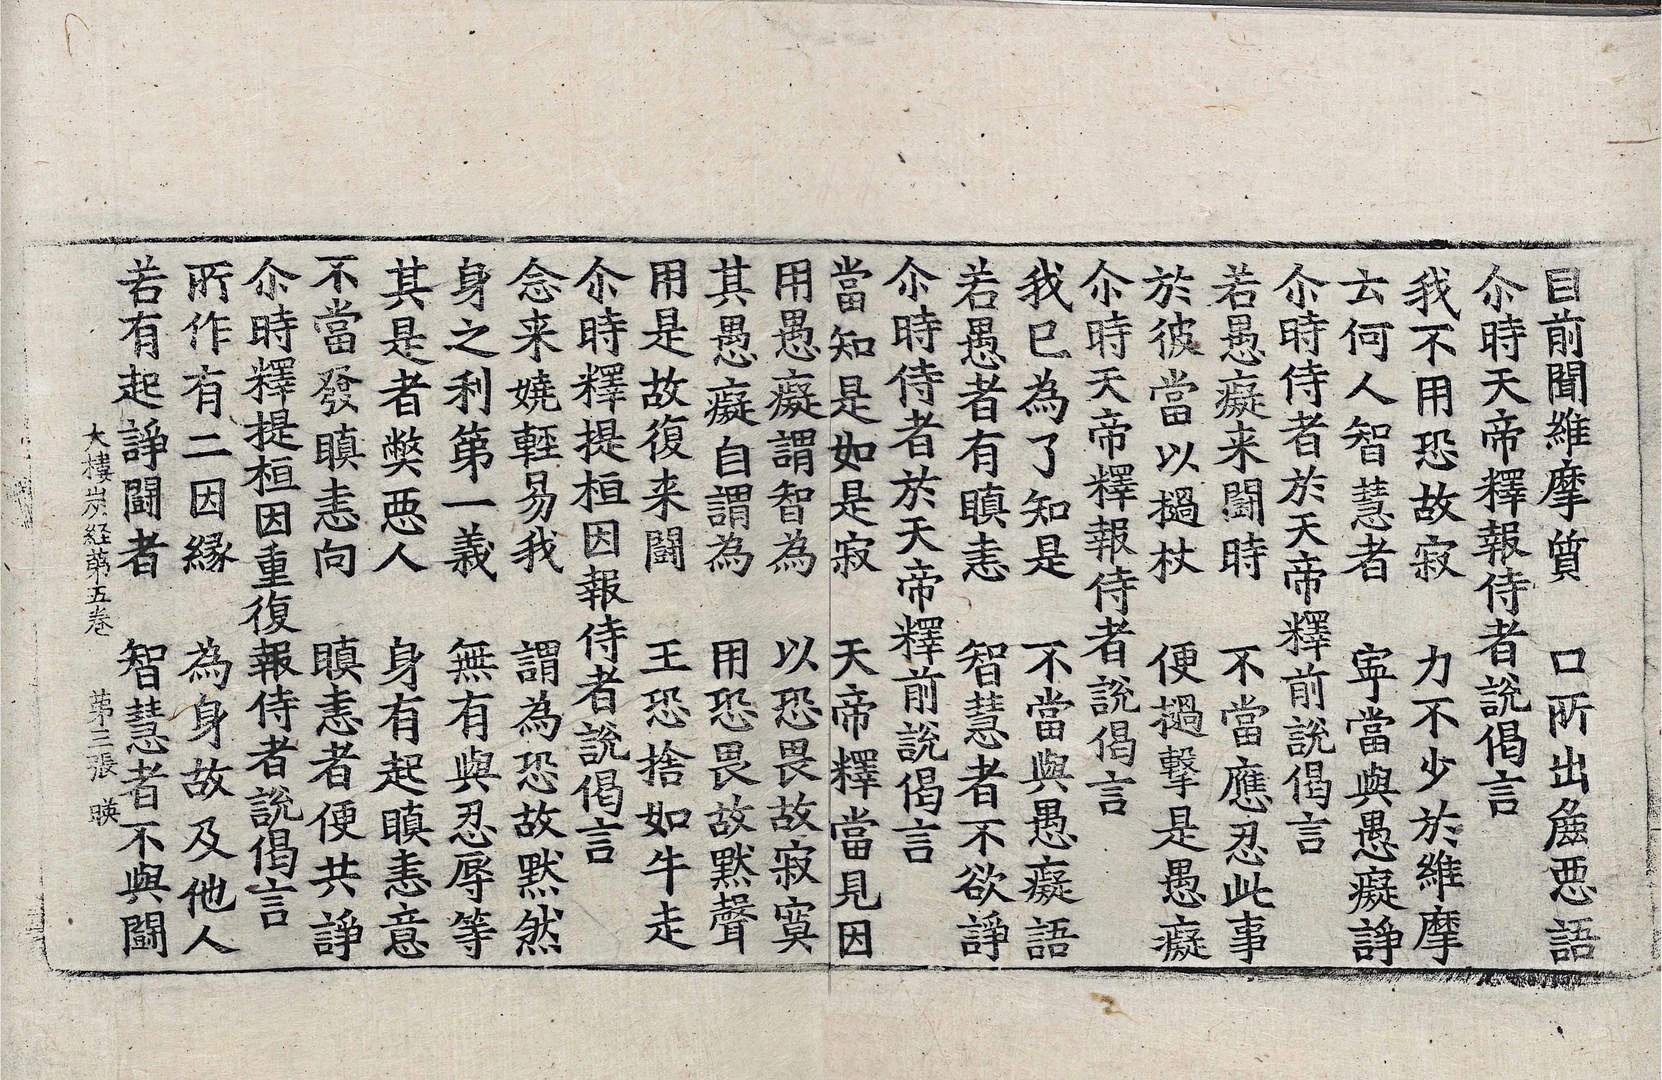 目前聞維摩質　口所出麁悪語
尒時天帝釋報侍者說偈言
我不用恐故寂　力不少於維摩
云何人智慧者　寜當與愚癡諍
尒時侍者於天帝釋前說偈言
若愚癡来闘時　不當應忍此事
於彼當以撾杖　便撾擊是愚癡
尒時天帝釋報侍者說偈言
我已為了知是　不當與愚癡語
若愚者有瞋恚　智慧者不欲諍
尒時侍者於天帝釋前說偈言
當知是如是寂　天帝釋當見因
用愚癡謂智為　以恐畏故寂寞
其愚癡自謂為　用恐畏故黙聲
用是故復来闘　王恐捨如牛走
尒時釋提桓因報侍者說偈言
念来嬈輕易我　謂為恐故黙然
身之利第一義　無有與忍辱等
其是者弊悪人　身有起瞋恚意
不當發瞋恚向　瞋恚者便共諍
尒時釋提桓因重復報侍者說偈言
所作有二因緣　為身故及他人
若有起諍闘者　智慧者不與闘
大樓炭経第五卷　第三張　暎